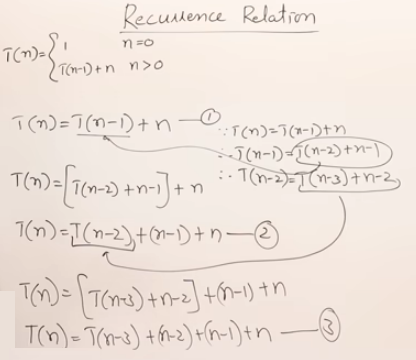 Recurrence Relation
T(n)= { 1 n=0
T(n-1)+n n>0
T(n)=T(n-1)+n —①
∵ T(n)=T(n-1)+n
∴ T(n-1)=T(n-2)+n-1
∴ T(n-2)=T(n-3)+n-2
T(n)=[T(n-2)+n-1]+n
T(n)=T(n-2)+(n-1)+n —②
T(n)=[T(n-3)+n-2]+(n-1)+n
T(n)=T(n-3)+(n-2)+(n-1)+n —③